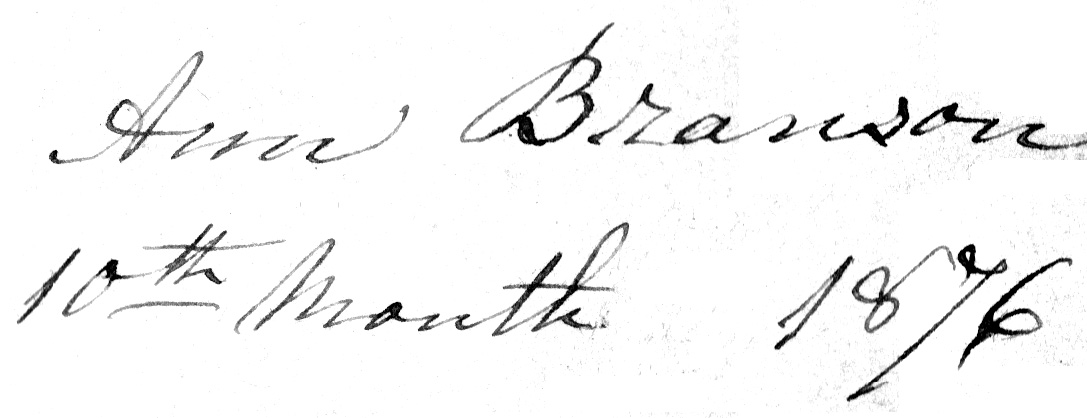 Ann Branson
10th Month 1876